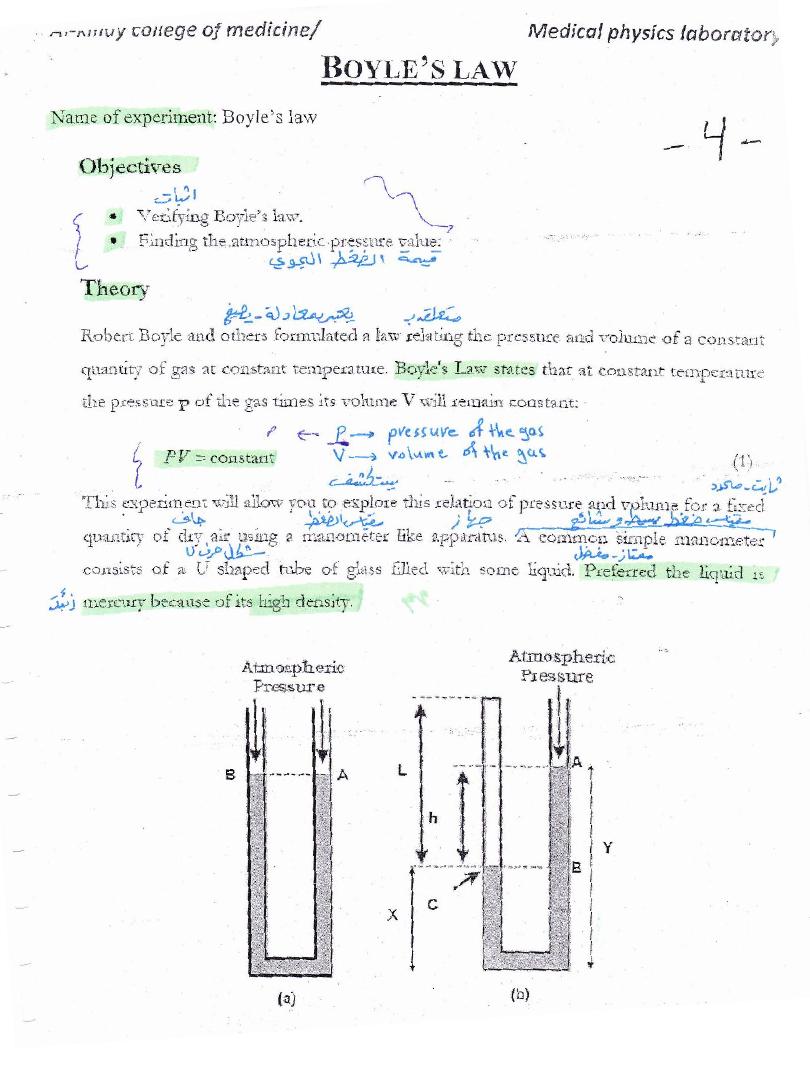 college of medicine/ Medical physics laboratory
BOYLE'S LAW
Name of experiment: Boyle's law
- 4 -
Objectives
اثبات
• Verifying Boyle's law.
• Finding the atmospheric pressure value:
قيمة الضغط الجوي
Theory
Robert Boyle and others formulated a law relating the pressure and volume of a constant
quantity of gas at constant temperature. Boyle's Law states that at constant temperature
the pressure p of the gas times its volume V will remain constant:
P ← P → pressure of the gas
PV = constant V → volume of the gas (1)
يستكشف ثابت - محدد
This experiment will allow you to explore this relation of pressure and volume for a fixed
جاف مقياس الضغط جهاز مقياس ضغط بسيط و شائع
quantity of dry air using a manometer like apparatus. A common simple manometer
شكل حرف U ممتاز - مفضل
consists of a U shaped tube of glass filled with some liquid. Preferred the liquid is
زئبق mercury because of its high density.
Atmospheric
Pressure
Atmospheric
Pressure
B A
A
L
h
Y
B
C
X
(a) (b)